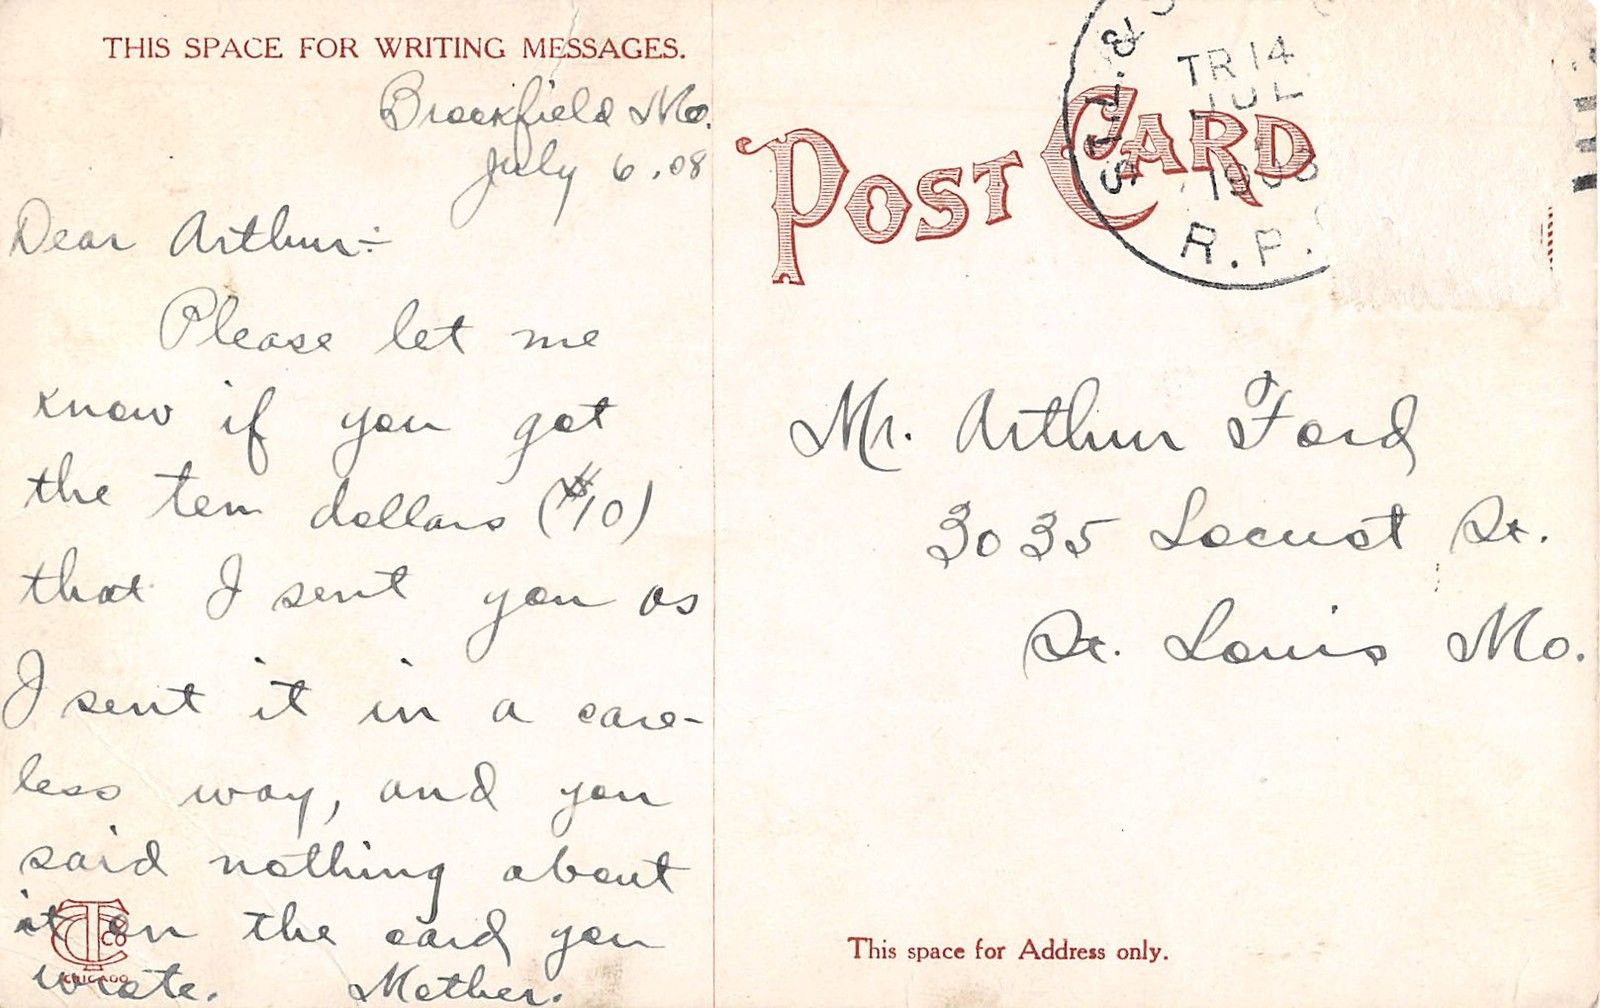 THIS SPACE FOR WRITING MESSAGES.
Brookfield Mo.
July 6. 08
Dear Arthur:-
Please let me
know if you got
the ten dollars ($10)
that I sent you as
I sent it in a care-
less way, and you
said nothing about
it on the card you
wrote. Mother.
CTCO
CHICAGO
POST CARD
ST.L. &
TR 14
JUL
7
1908
R.P.
Mr. Arthur Ford
3035 Locust St.
St. Louis Mo.
This space for Address only.